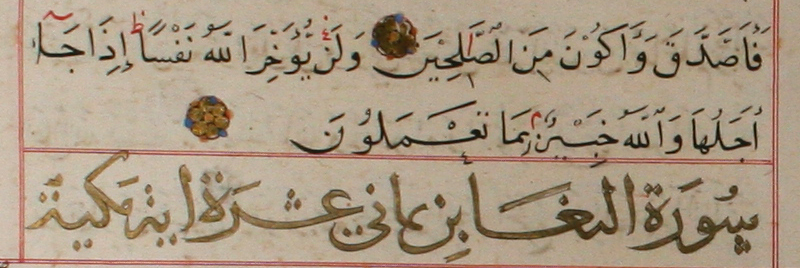 فَأَصَّدَّقَ وَأَكُوْنَ مِنَ الصَّلِحِيْنَ وَلَنْ يُّؤَخِّرَ اللّٰهُ نَفْسًا إِذَا جَآءَ
أَجَلُهَا وَاللّٰهُ خَبِيْرٌ بِمَا تَعْمَلُوْنَ
سُورَة التغَابن ثماني عشرَة اية مكية